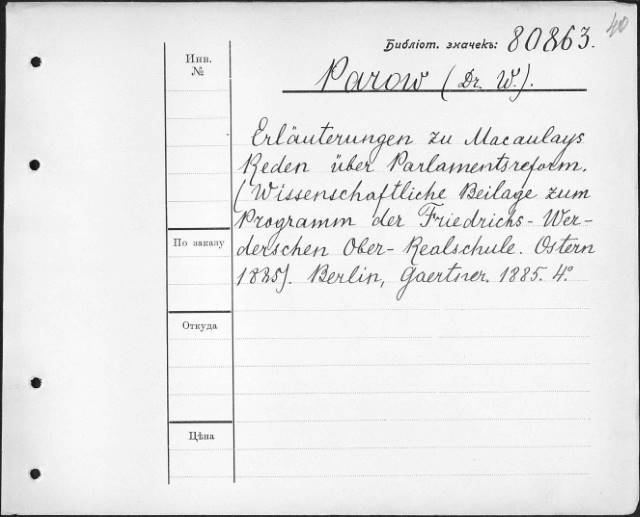 40
Библіот. значекъ: 80863.
Инв.
№
Parow (Dr. W.).
Erläuterungen zu Macaulays
Reden über Parlamentsreform.
(Wissenschaftliche Beilage zum
Programm der Friedrichs-Wer-
derschen Ober-Realschule. Ostern
1885). Berlin, Gaertner. 1885. 4°
По заказу
Откуда
Цѣна